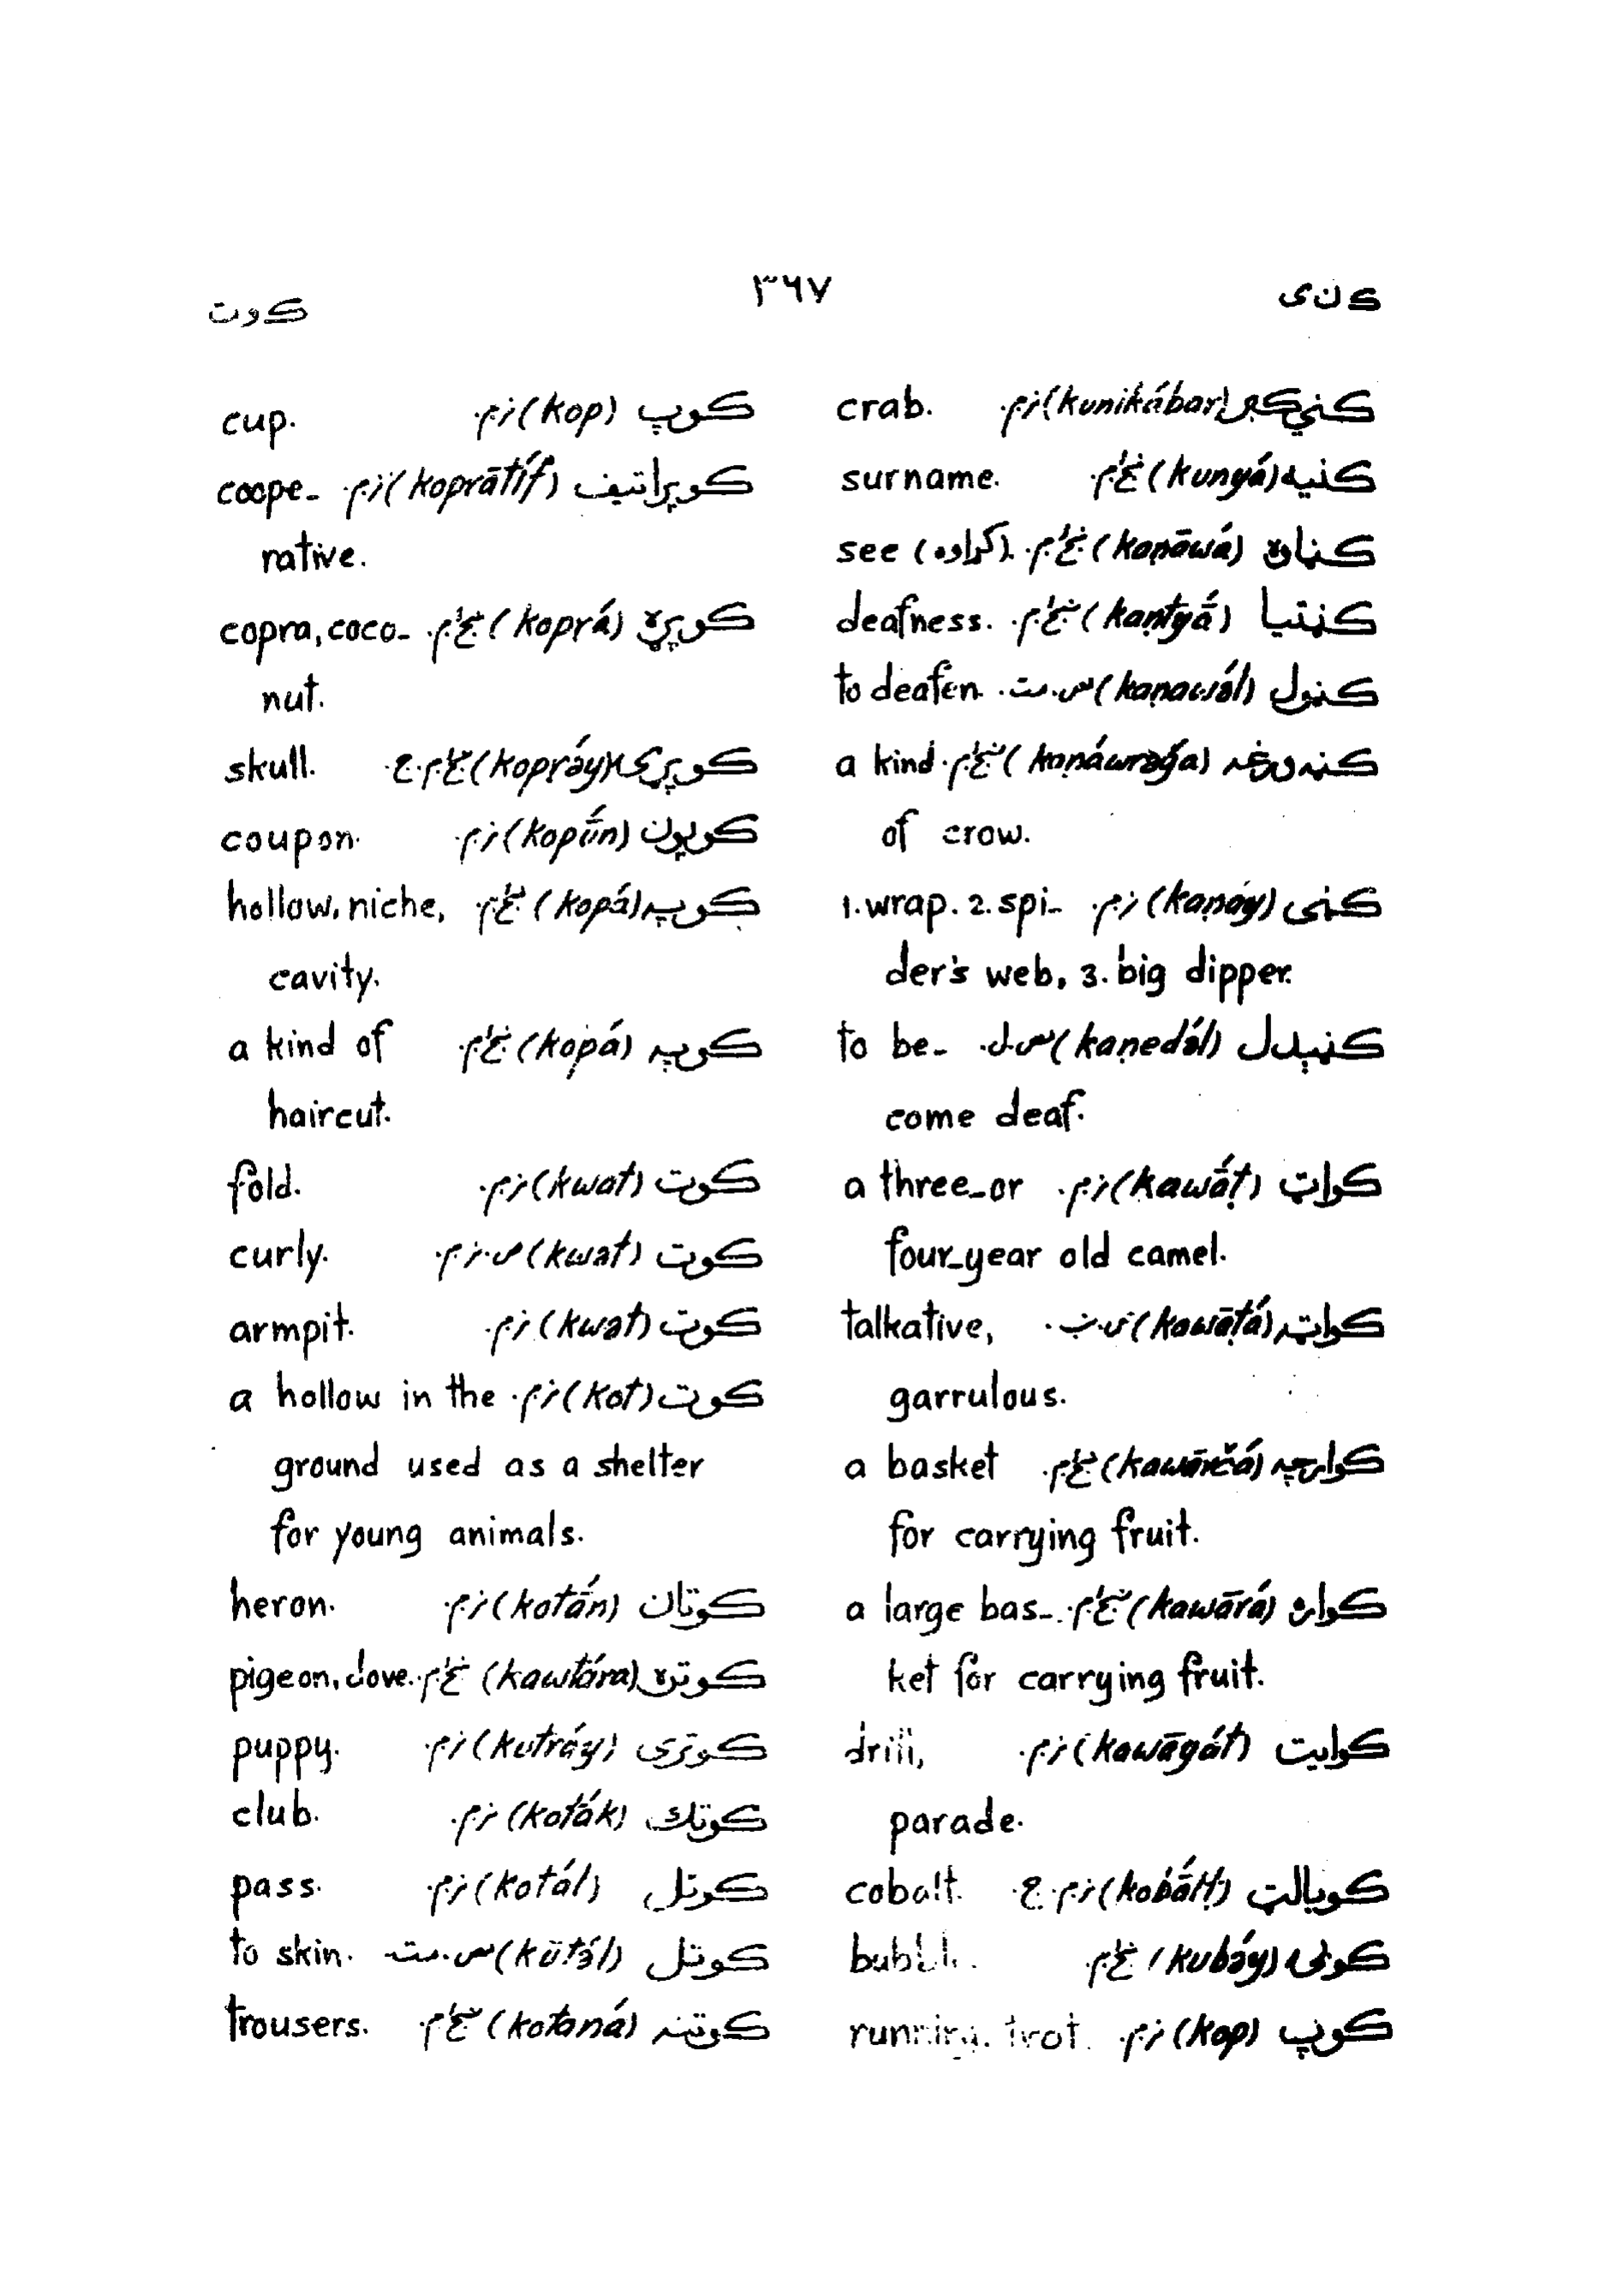 کنی ۳۶۷ کوت
کنيکبر (kunikábar) نرم. crab.
کنيه (kunyá) ښځم. surname.
کڼاوه (kaṇāwá) ښځم. see (کراوه).
کڼتيا (kaṇtyā́) ښځم. deafness.
کڼول (kaṇawә́l) س.مت. to deafen.
(kaṇáwrәǵa) ښځم. a kind
of crow.
کڼی (kaṇáy) نرم. 1.wrap. 2.spi-
der's web, 3. big dipper.
کڼېدل (kaṇedә́l) س.ل. to be-
come deaf.
کواټ (kawā́ṭ) نرم. a three-or
four-year old camel.
کواټه (kawāṭá) talkative,
garrulous.
کوارچه (kawārčá) ښځم. a basket
for carrying fruit.
کواره (kawārá) ښځم. a large bas-
ket for carrying fruit.
(kawāgát) نرم. drill,
parade.
کوبالټ (kobā́lṭ) نرم. ج. cobalt.
(kubә́y) ښځم.
کوپ (kop) نرم. running, trot.
کوپ (kop) نرم. cup.
کوپراتيف (koprātī́f) نرم. coope-
rative.
کوپره (koprá) ښځم. copra, coco-
nut.
کوپرۍ (koprә́y) ښځم. ج. skull.
کوپون (kopū́n) نرم. coupon.
کوپه (kopá) ښځم. hollow, niche,
cavity.
کوپه (kopá) ښځم. a kind of
haircut.
کوت (kwat) نرم. fold.
کوت (kwәt) ص.نرم. curly.
کوت (kwәt) نرم. armpit.
کوت (kot) نرم. a hollow in the
ground used as a shelter
for young animals.
کوتان (kotā́n) نرم. heron.
کوتره (kawtára) ښځم. pigeon, dove.
کوتری (kutráy) نرم. puppy.
کوتک (koták) نرم. club.
کوتل (kotál) نرم. pass.
کوتل (kūtә́l) س.مت. to skin.
کوتنه (kotaná) ښځم. trousers.